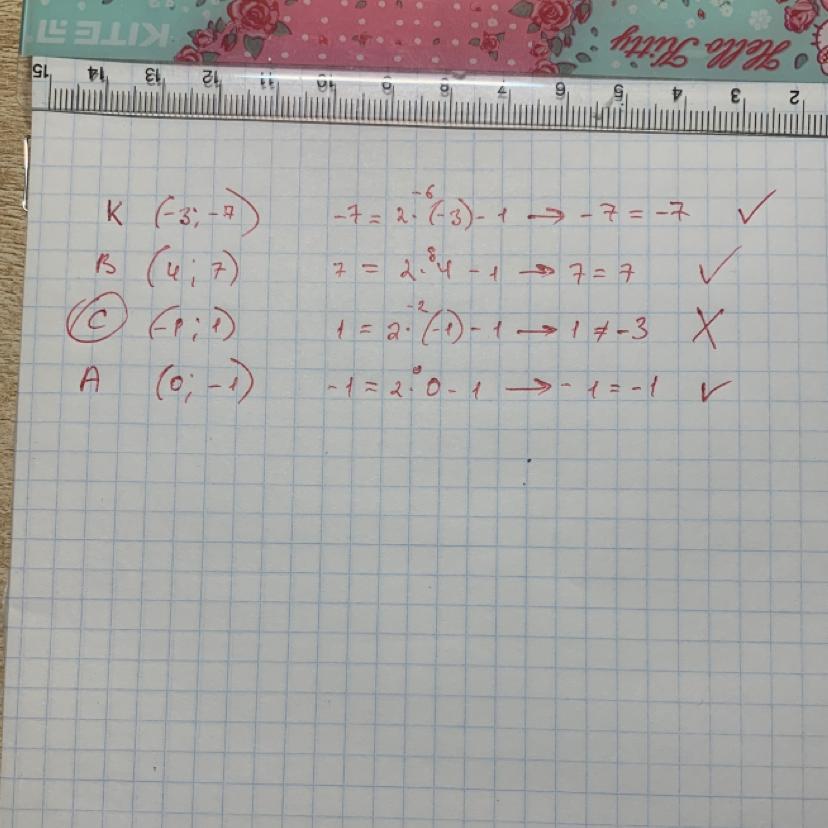 KITE
Hello Kitty
15 14 13 12 11 10 9 8 7 6 5 4 3 2
K (-3; -7) -7 = 2·(-3) - 1 → -7 = -7 ✓
-6
B (4; 7) 7 = 2·4 - 1 → 7 = 7 ✓
8
C (-1; 1) 1 = 2·(-1) - 1 → 1 ≠ -3 X
-2
A (0; -1) -1 = 2·0 - 1 → -1 = -1 ✓
0